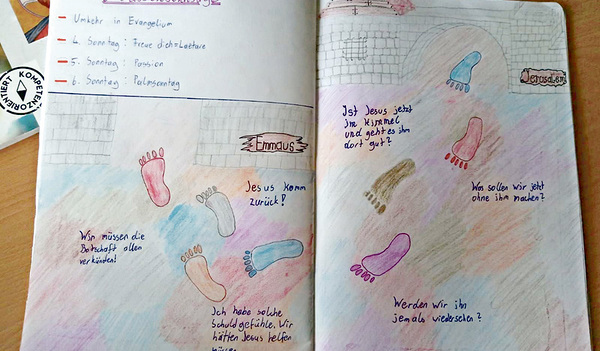 - Umkehr in Evangelium
- 4. Sonntag: Freue dich=Laetare
- 5. Sonntag: Passion
- 6. Sonntag: Palmsonntag
KOMPETENZORIENTIERT
Emmaus
Jesus komm
zurück!
Wir müssen die
Botschaft allen
verkünden!
Ich habe solche
Schuldgefühle. Wir
hätten Jesus helfen
müssen
Jerusalem
Ist Jesus jetzt
im Himmel
und geht es ihm
dort gut?
Was sollen wir jetzt
ohne ihm machen?
Werden wir ihn
jemals wiedersehen?